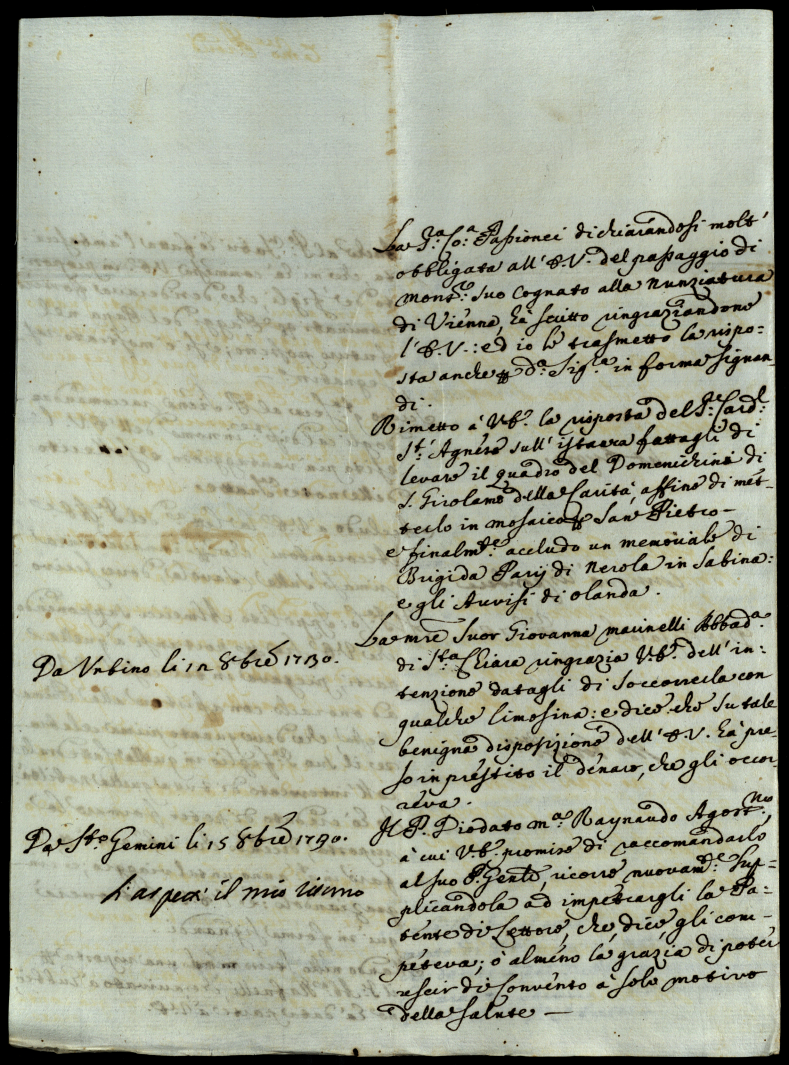 La S.ra Co.a Passionei dichiarandosi molt'
obbligata all' E.V. del passaggio di
mont.r suo cognato alla Nunziatura
di Vienna, hà scritto ringraziandone
l' E.V.: ed io le trasmetto la rispo-
sta anche d.a Sig.ra in forma signan-
di.
Rimetto à V.E. la risposta del S.r Card.l
S.t' Agnese sull' istanza fattagli di
levare il quadro del Domenichini di
S. Girolamo della Carità, affine di met-
terlo in mosaico San Pietro -
e finalm.te accludo un memoriale di
Brigida Parij di Nerola in Sabina:
e gli Avvisi di olanda.
La mre Suor Giovanna marinelli Abbad.a
di S.ta Chiara ringrazia V.E. dell' in-
tenzione datagli di soccorrerla con
qualche limosina: e dice che su tale
benigna disposizione dell' E.V. hà pre-
so in prestito il denaro, che gli occor-
reva.
Da Urbino li 12 8bre 1730.
Il P. Diodato m.a Raynaudo Agost.no
à cui V.E. promise di raccomandarlo
al suo P. Gen.le, ricorre nuovam.te sup-
plicandola ad impetrargli la Pa-
tente di Lettore, che, dice, gli com-
peteva; ò almeno la grazia di poter
uscir di Convento à solo motivo
della salute -
Da S.to Gemini li 15 8bre 1730.
il mio